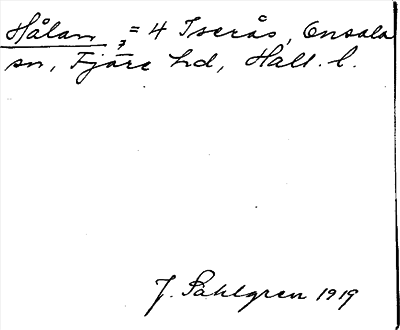 Hålan, = 4 Iserås, Onsala
sn, Fjäre hd, Hall. l.
J. Sahlgren 1919